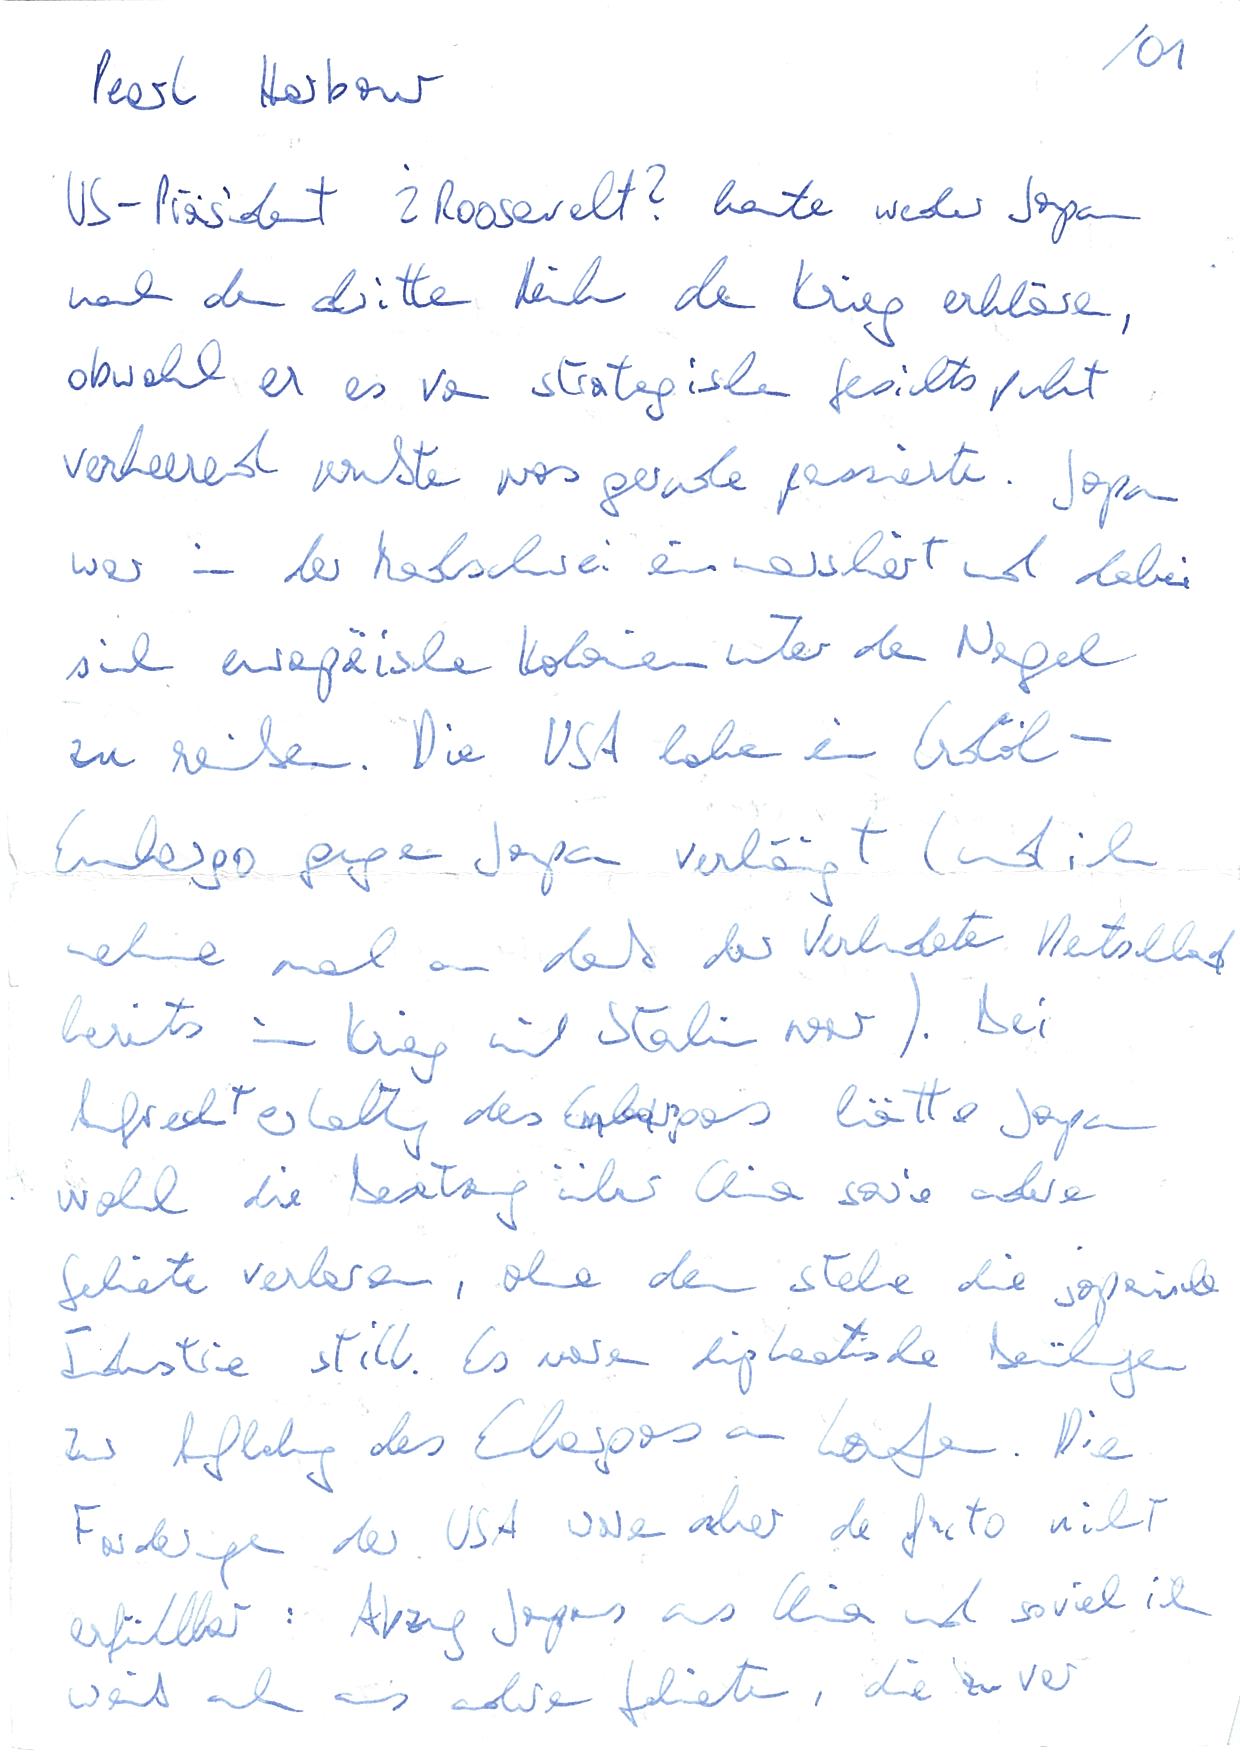 /01
Pearl Harbour
US-Präsident ¿Roosevelt? konnte weder Japan
noch dem dritten Reich den Krieg erklären,
obwohl er es vom strategischen Gesichtspunkt
verheerend wußte was gerade passierte. Japan
war in der Mandschurei einmarschiert und dabei
sich europäische Kolonien unter den Nagel
zu reißen. Die USA haben ein Erdöl-
Embargo gegen Japan verhängt (und ich
nehme mal an daß der Verbündete Deutschland
bereits im Krieg mit Stalin war). Bei
Aufrechterhaltung des Embargos hätte Japan
wohl die Besatzung über China sowie andere
Gebiete verloren, ohne dem stehe die japanische
Industrie still. Es waren diplomatische Bemühungen
zur Aufhebung des Embargos am Laufen. Die
Forderungen der USA waren aber de facto nicht
erfüllbar: Abzug Japans aus China und soviel ich
weiß auch aus anderen Gebieten, die zu ver